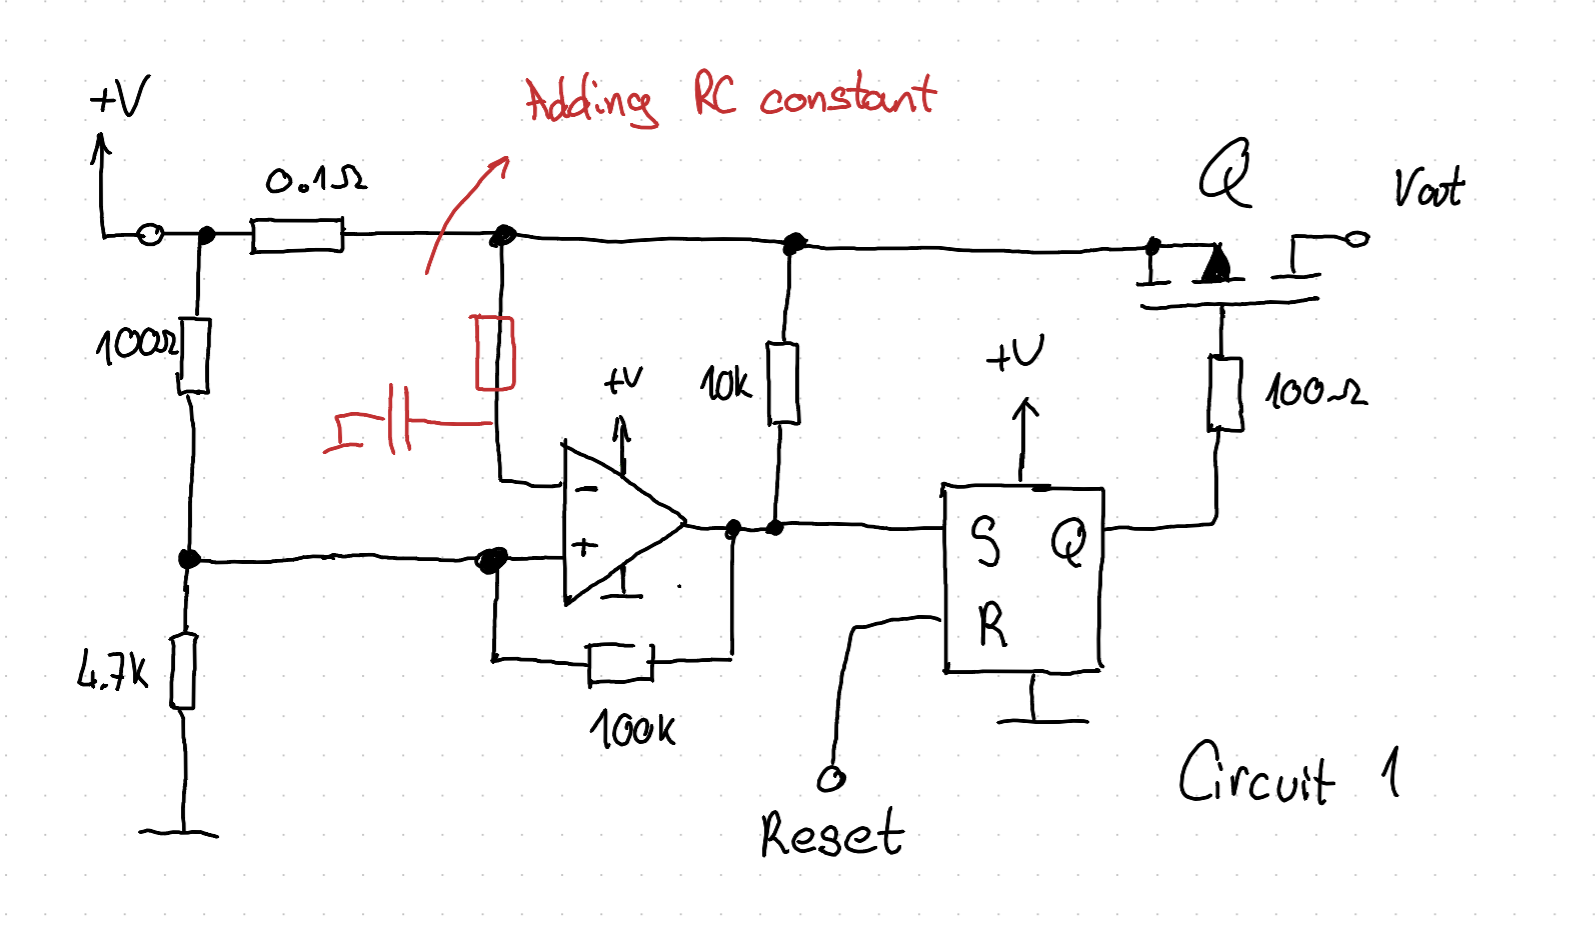 Adding RC constant
+V
0.1Ω
Q
Vout
100Ω
+V
10k
+V
100Ω
-
+
S Q
R
4.7k
100k
Reset
Circuit 1